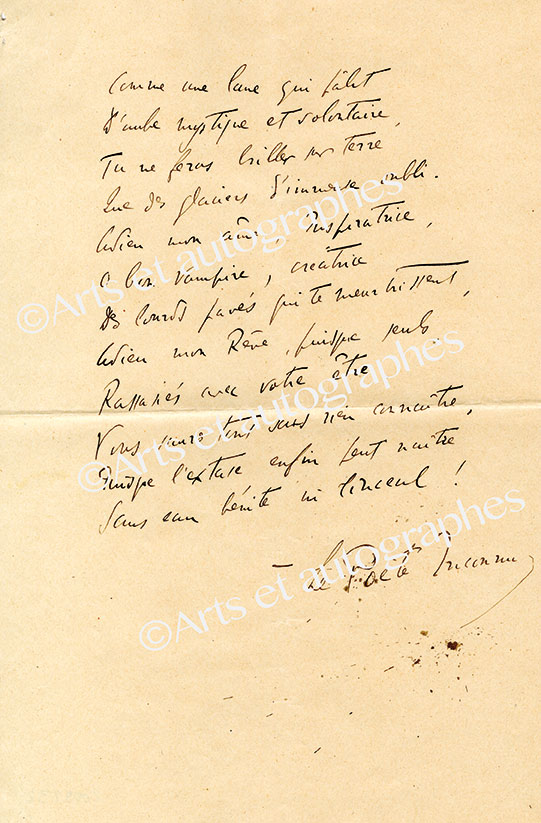 Comme une lune qui pâlit
D'aube mystique et volontaire,
Tu ne feras briller sur terre
Que des glaciers d'immense oubli.
Adieu mon âme, Inspiratrice,
O bon vampire, créatrice
Des lourds pavés qui te meurtrissent,
Adieu mon Rêve, puisque seuls
Rassasiés avec votre être
Vous tout sans rien connaître,
Puisque l'extase enfin peut naître
Sans eau bénite ni linceul !
— Le Poète Inconnu
©Arts et autographes
©Arts et autographes
©Arts et autographes